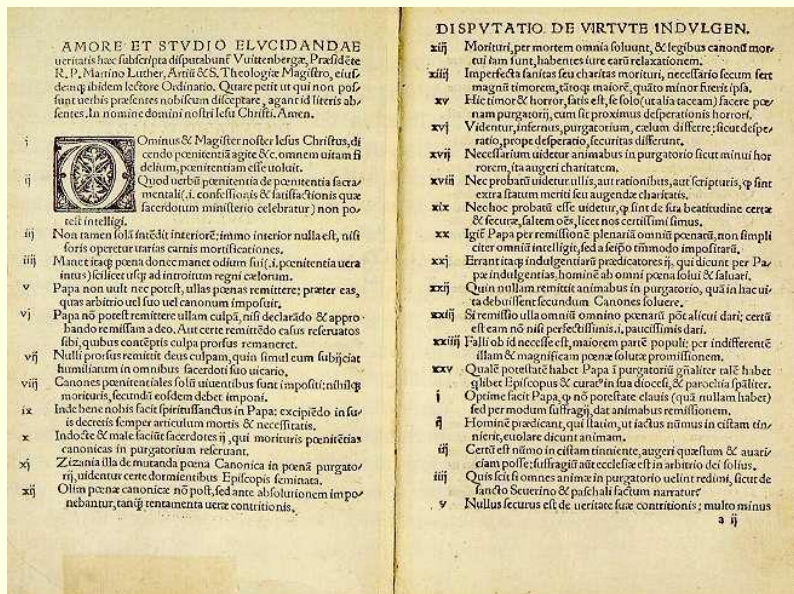 AMORE ET STVDIO ELVCIDANDAE
ueritatis hæc subscripta disputabunť Vuittenbergæ, Præsidēte
R. P. Martino Luther, Artiū & S. Theologiæ Magistro, eius/
demq; ibidem lectore Ordinario. Quare petit ut qui non pos/
sunt uerbis præsentes nobiscum disceptare, agant id literis ab/
sentes. In nomine domini nostri Iesu Christi. Amen.
i Ominus & Magister noster Iesus Christus, di
cendo pœnitentiā agite &c. omnem uitam fi
delium, pœnitentiam esse uoluit.
ij Quod uerbū pœnitentia de pœnitentia sacra/
mentali (.i. confessionis & satisfactionis quæ
sacerdotum ministerio celebratur) non po/
test intelligi.
iij Non tamen solā intēdit interiorē; immo interior nulla est, nisi
foris operetur uarias carnis mortificationes.
iiij Manet itaq; pœna donec manet odium sui (.i. pœnitentia uera
intus) scilicet usq; ad introitum regni cælorum.
v Papa non uult nec potest, ullas pœnas remittere; præter eas,
quas arbitrio uel suo uel canonum imposuit.
vj Papa nō potest remittere ullam culpā, nisi declarādo & appro/
bando remissam a deo. Aut certe remittēdo casus reseruatos
sibi, quibus contēptis culpa prorsus remaneret.
vij Nulli prorsus remittit deus culpam, quin simul eum subijciat
humiliatum in omnibus sacerdoti suo uicario.
viij Canones pœnitentiales solū uiuentibus sunt impositi; nihilq;
morituris, secundū eosdem debet imponi.
ix Inde bene nobis facit spiritussanctus in Papa: excipiēdo in su/
is decretis semper articulum mortis & necessitatis.
x Indocte & male faciūt sacerdotes ij, qui morituris pœnitētias
canonicas in purgatorium reseruant.
xj Zizania illa de mutanda pœna Canonica in pœnā purgato/
rij, uidentur certe dormientibus Episcopis seminata.
xij Olim pœnæ canonicæ nō post, sed ante absolutionem impo/
nebantur, tanq̄ tentamenta ueræ contritionis.
DISPVTATIO DE VIRTVTE INDVLGEN.
xiij Morituri, per mortem omnia soluunt, & legibus canonū mor/
tui iam sunt, habentes iure earū relaxationem.
xiiij Imperfecta sanitas seu charitas morituri, necessario secum fert
magnū timorem, tātoq; maiorē, quāto minor fuerit ipsa.
xv Hic timor & horror, satis est, se solo (ut alia taceam) facere pœ/
nam purgatorij, cum sit proximus desperationis horrori.
xvj Videntur, infernus, purgatorium, cælum differre; sicut despe/
ratio, prope desperatio, securitas differunt.
xvij Necessarium uidetur animabus in purgatorio sicut minui hor/
rorem, ita augeri charitatem.
xviij Nec probatū uidetur ullis, aut rationibus, aut scripturis, q̄ sint
extra statum meriti seu augendæ charitatis.
xix Nec hoc probatū esse uidetur, q̄ sint de sua beatitudine certæ
& securæ, saltem oēs, licet nos certissimi simus.
xx Igiť Papa per remissionē plenariā omniū pœnarū, non simpli
citer omniū intelligit, sed a seipō tm̄modo impositarū.
xxj Errant itaq; indulgentiarū prædicatores ij, qui dicunt per Pa/
pæ indulgentias, hominē ab omni pœna solui & saluari.
xxij Quin nullam remittit animabus in purgatorio, quā in hac ui/
ta debuissent secundum Canones soluere.
xxiij Si remissio ulla omniū omnino pœnarū pōt alicui dari; certū
est eam nō nisi perfectissimis .i. paucissimis dari.
xxiiij Falli ob id necesse est, maiorem partē populi; per indifferentē
illam & magnificam pœnæ solutæ promissionem.
xxv Qualē potestatē habet Papa ī purgatoriū gn̄aliter talē habet
q̄libet Episcopus & curat9 in sua diocesi, & parochia sp̄aliter.
j Optime facit Papa, q̄ nō potestate clauis (quā nullam habet)
sed per modum suffragij, dat animabus remissionem.
ij Hominē prædicant, qui statim, ut iactus nūmus in cistam tin/
nierit, euolare dicunt animam.
iij Certū est nūmo in cistam tinniente, augeri quæstum & auari/
ciam posse; suffragiū aūt ecclesiæ est in arbitrio dei solius.
iiij Quis scit si omnes animæ in purgatorio uelint redimi, sicut de
sancto Seuerino & paschali factum narratur?
v Nullus securus est de ueritate suæ contritionis; multo minus
a ij